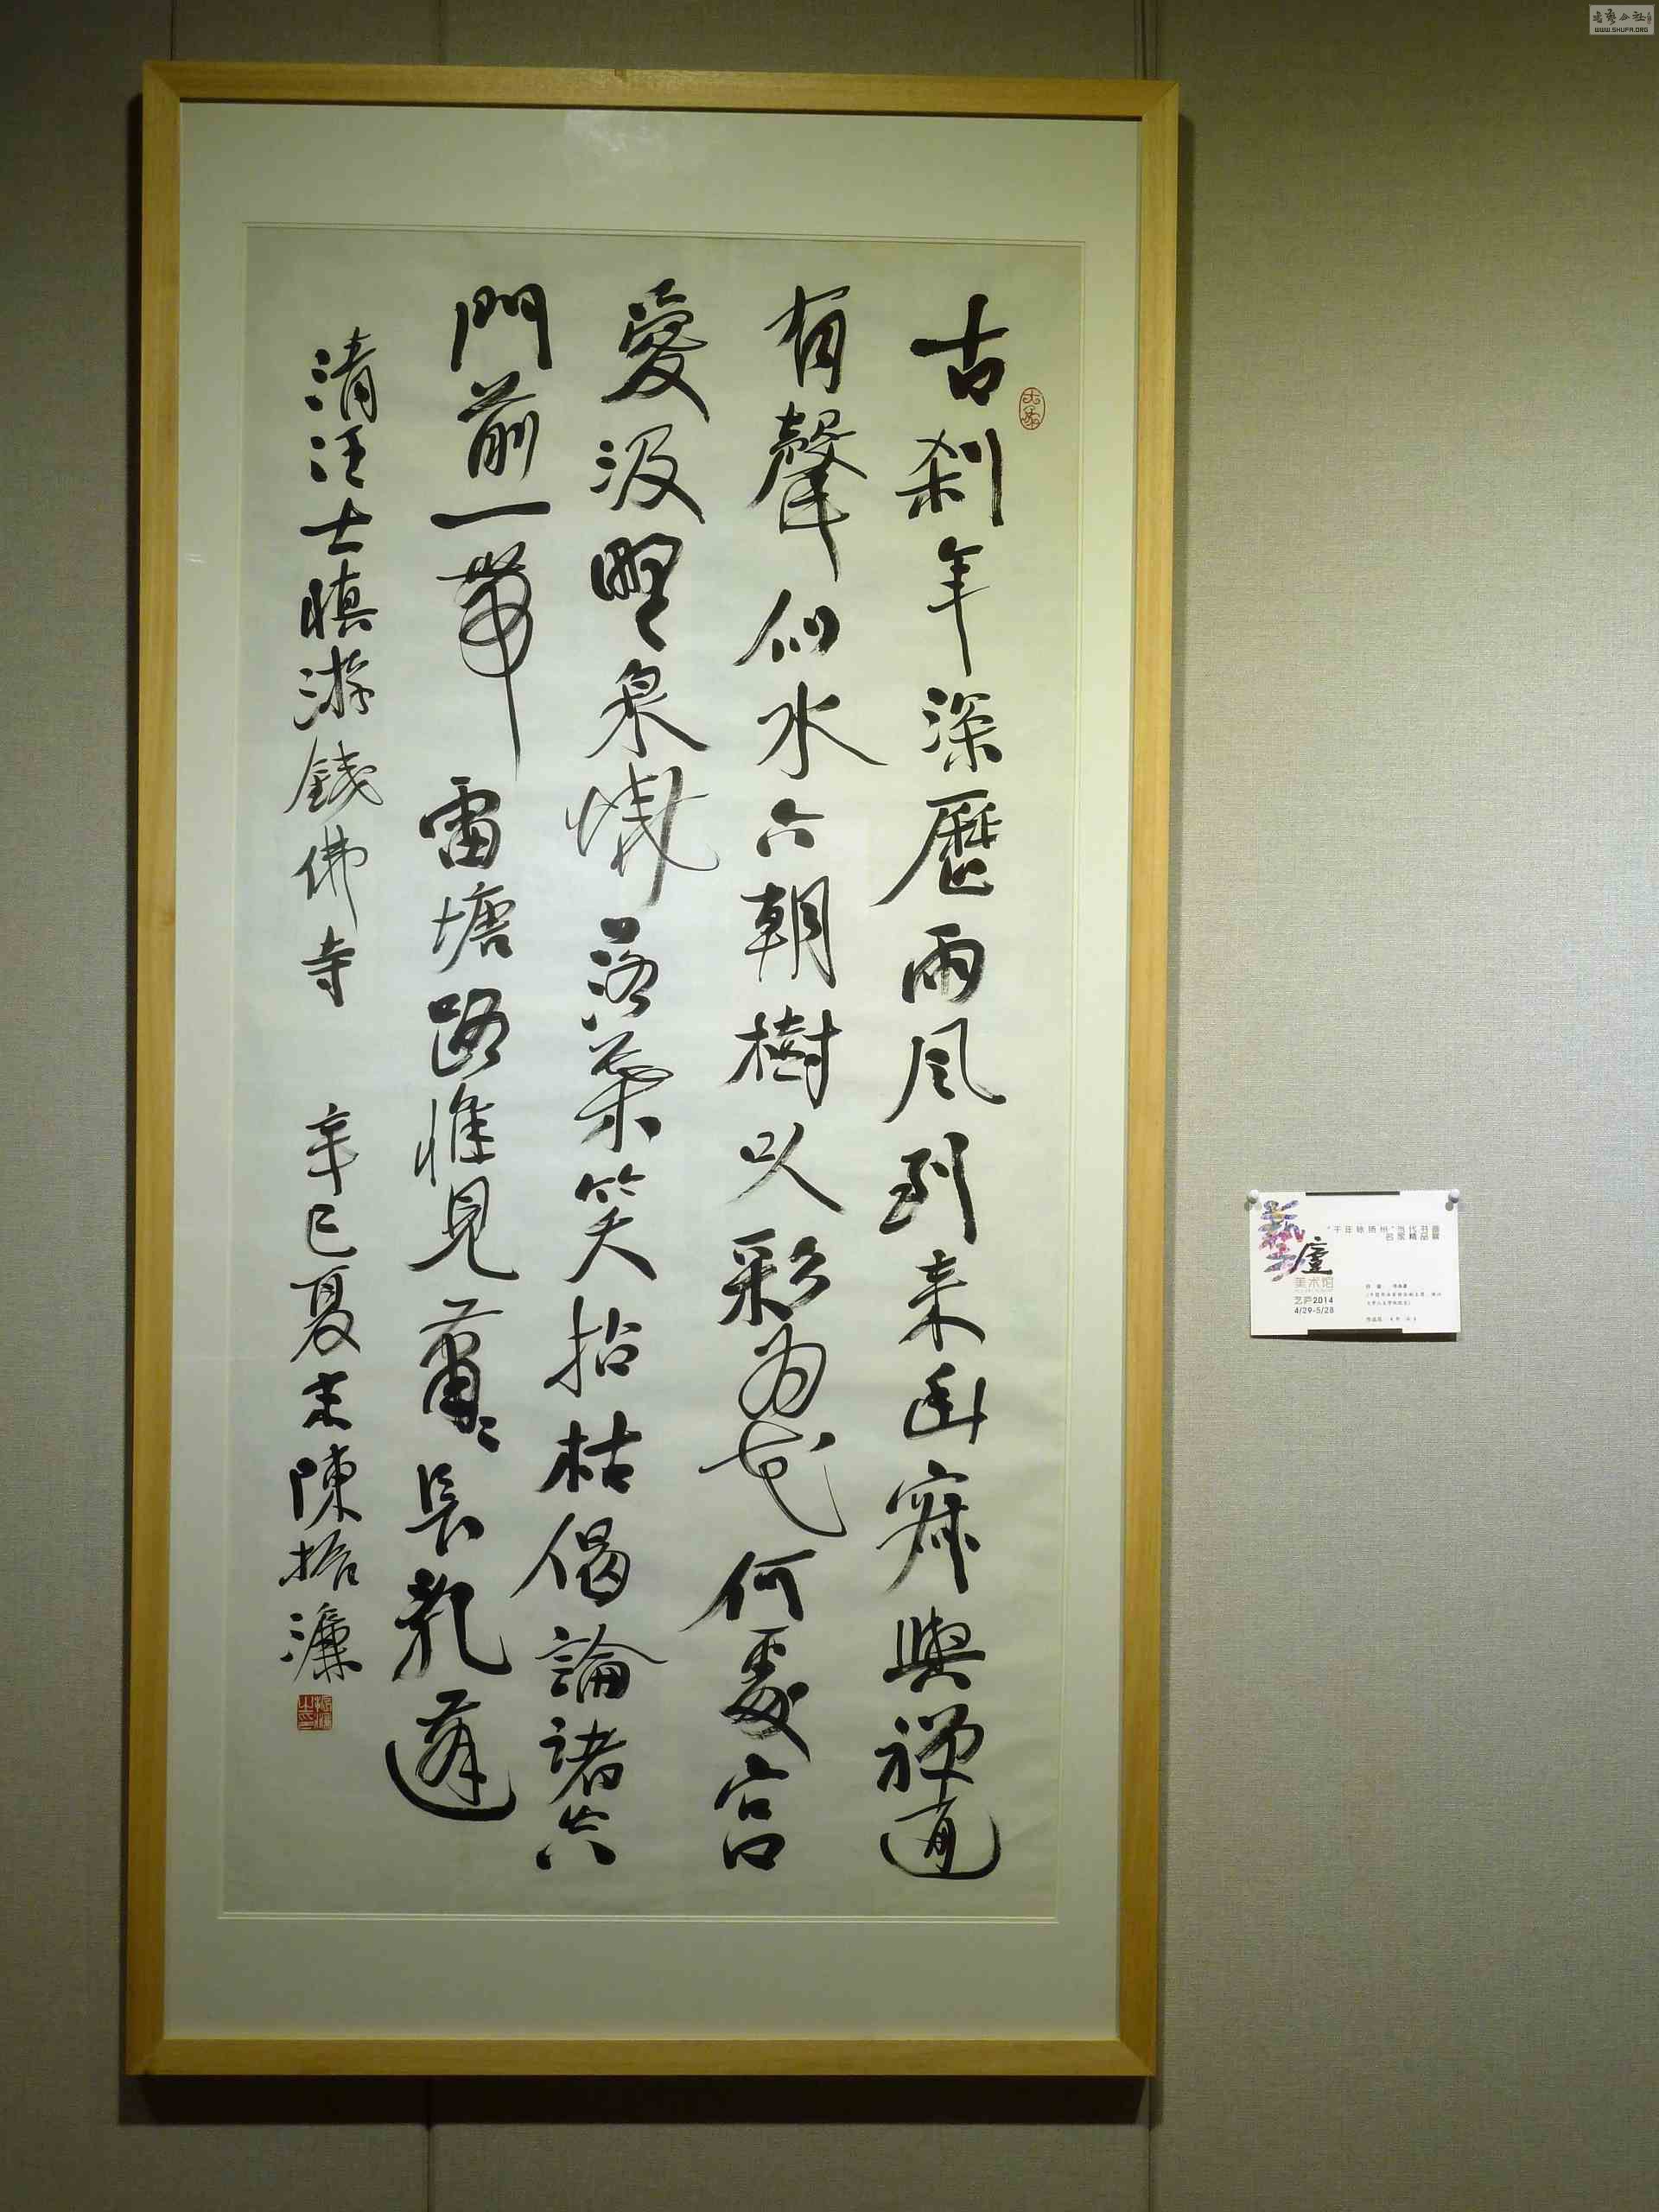 古刹年深歷雨风到来幽寂與禅通
有聲似水六朝樹以彩为花何處宫
愛汲野泉燒落葉笑拈枯偈論諸
門前一帶雷塘路惟見蕭〻長乱蓬
清汪士慎游鐵佛寺 辛巳夏末陳振濂
藝廬
美术馆
艺庐2014
4/29-5/28
"千年咏扬州"当代书画
名家精品展
WWW.SHUFA.ORG